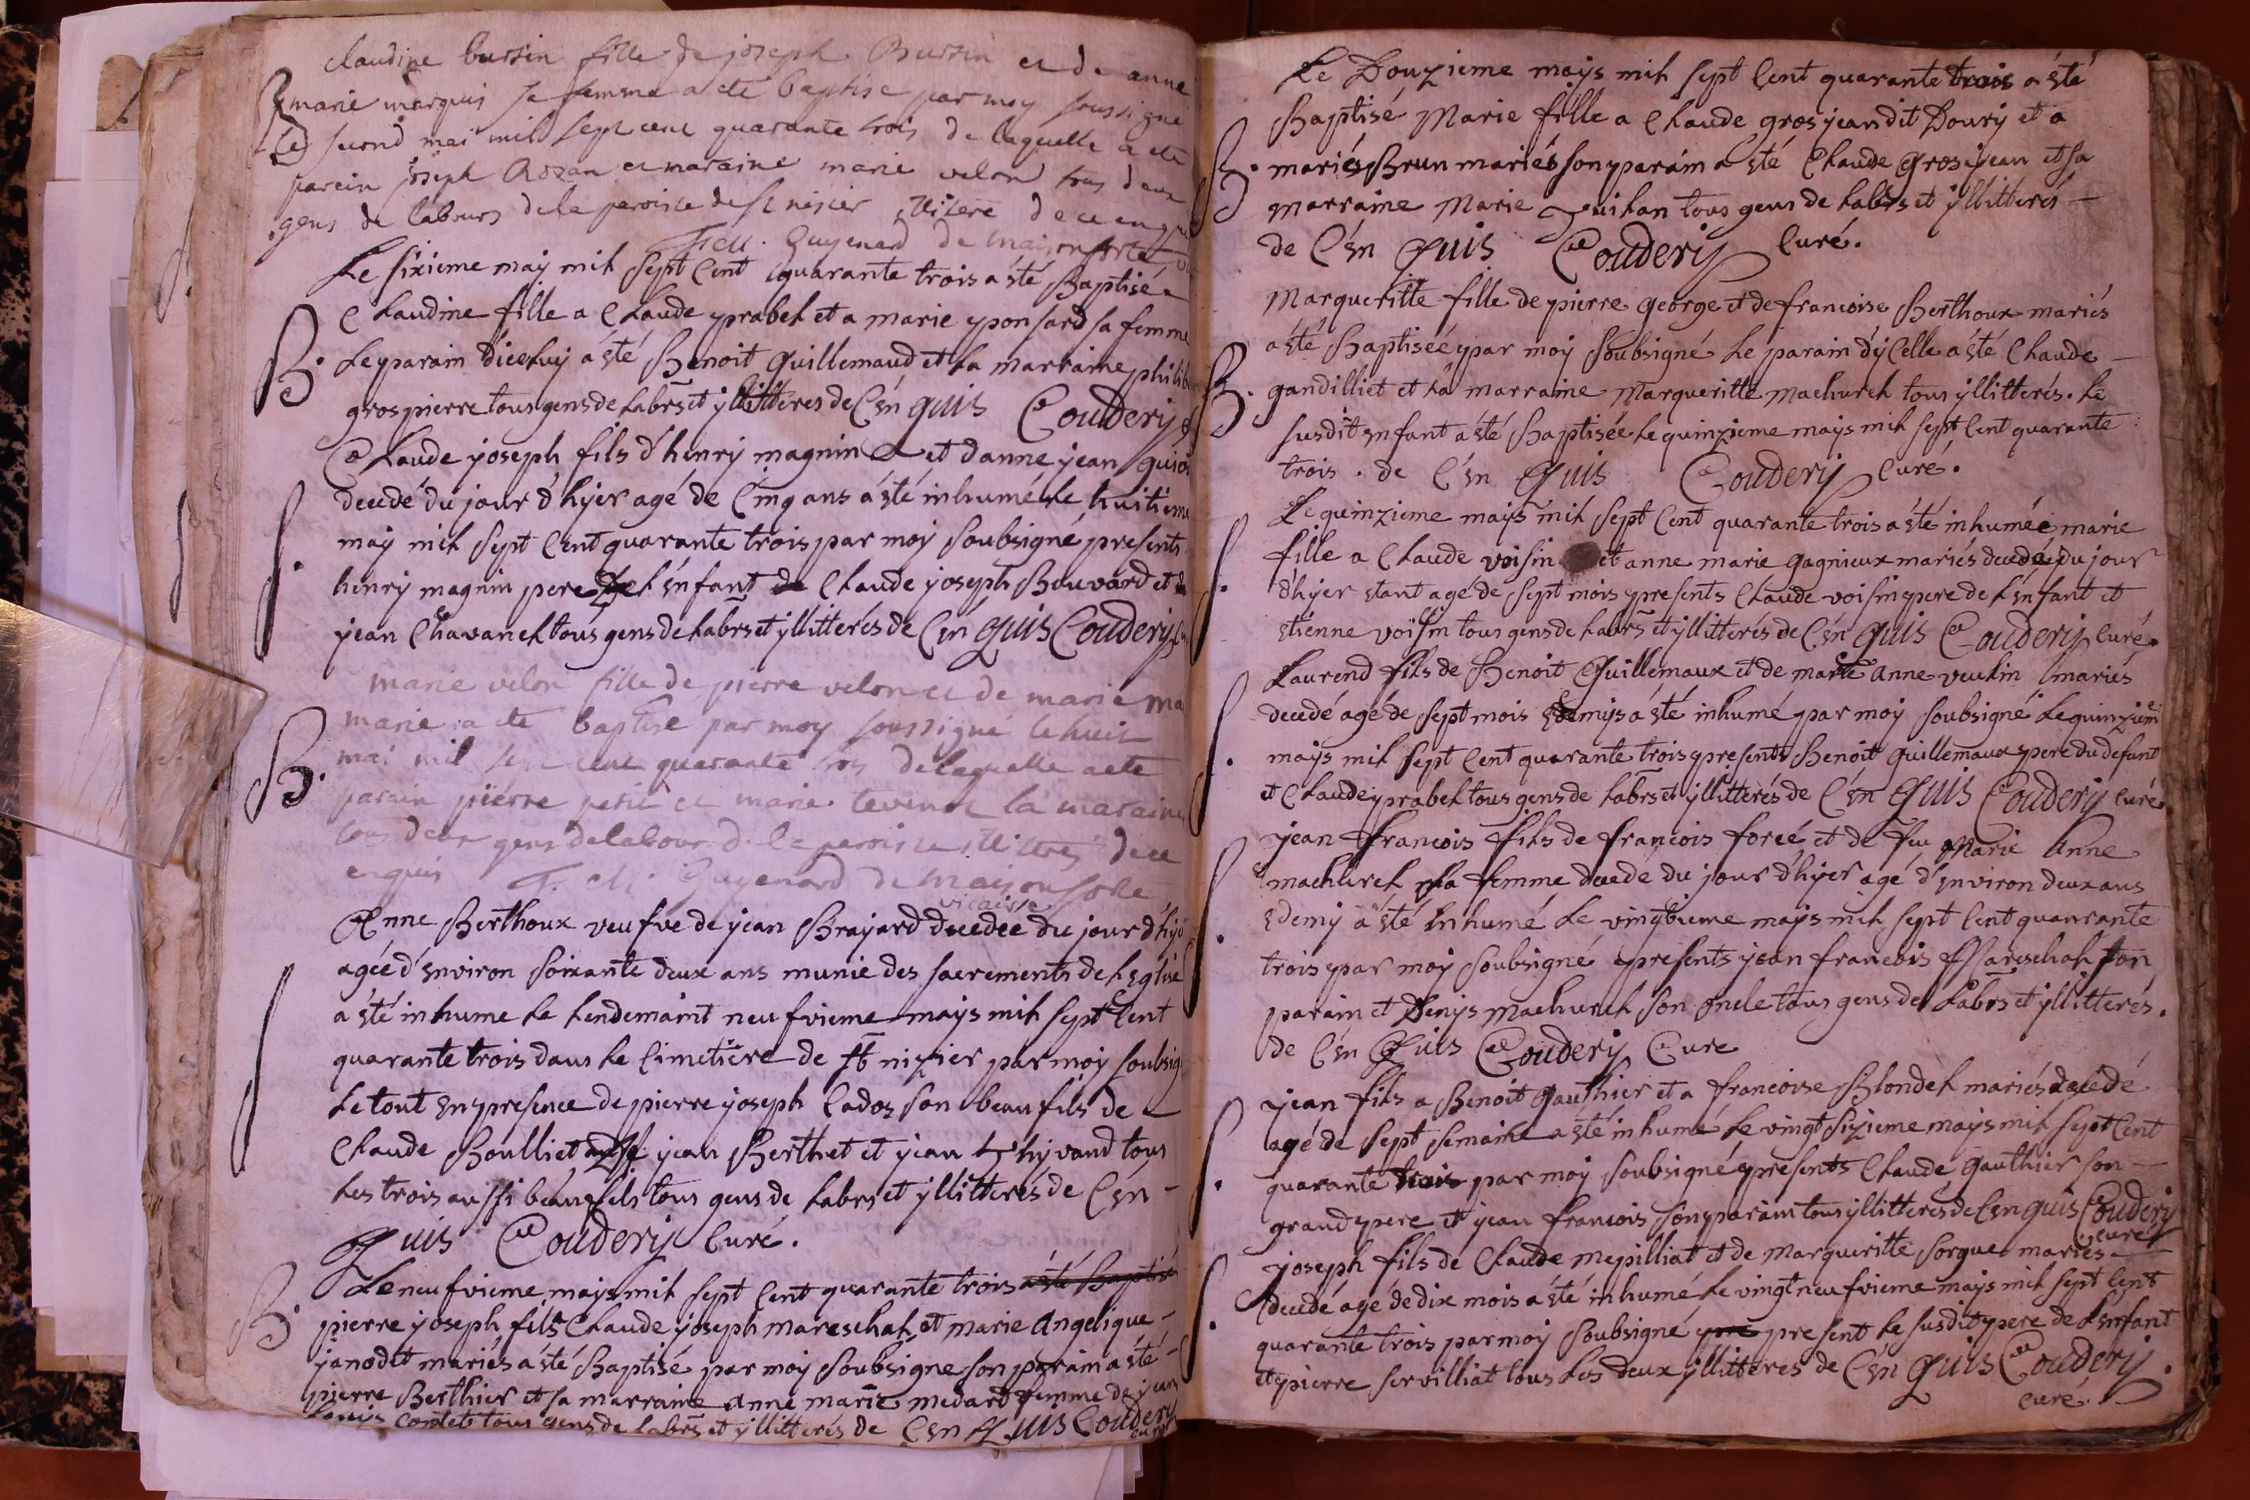 claudine bursin fille de joseph Bursin et de anne
B marie marquis sa femme a ete baptise par moy soussigne
le second mai mil sept cent quarante trois de laquelle a ete
parein joseph Rozan et maraine marie velon tous deux
gens de labeurs de la paroisse de st nisier illitere de ce enquis
f. ch. Guyenard de maisonforte
Le sixieme may mil sept Cent quarante trois a êté Baptisé
Claudine fille a Claude prabel et a marie ponsard sa femme
B. Le parain d'icelluy a êté Benoit Guillemaud et La marraine philib
grospierre tous gens de Labrs et yllitteres de C'en quis Couderij
Claude joseph fils d'henry magnin et d'anne jean
S. decedé du jour d'hyer agé de Cinq ans a êté inhumé Le huitieme
may mil sept Cent quarante trois par moy soubsigné presents
henry magnin pere de L'enfant Claude joseph Bouvard et
jean Chavanel tous gens de Labrs et yllitterés de C'en quis Couderij
marie velon fille de pierre velon et de marie ma
marie a ete baptise par moy soussigné le huit
B. mai mil sept cent quarante trois de laquelle a ete
parain pierre petit et marie tevenet la maraine
tous deux gens de labour de la paroisse illitres de ce
enquis f. ch. Guyenard de maisonforte
vicaire
Anne Berthoux veufve de jean Brajard decedee du jour d'hyer
agée d'environ soixante deux ans munie des sacrements de L'Eglise
a êté inhume Le Lendemaint neufvieme mays mil sept Cent
quarante trois dans Le Cimetiere de st nizier par moy soubsig
Le tout en presence de pierre joseph Cadoz son beau fils de
Claude Boulliet jean Berthet et jean thyvand tous
Les trois aussi beaufils tous gens de Labrs et yllitterés de C'en
quis Couderij Curé.
B. Le neufvieme mays mil sept Cent quarante trois a êté Baptisé
pierre joseph fils Claude joseph mareschal et marie Angelique
janodet mariés a êté Baptisé par moy soubsigne son parain a êté
pierre Berthier et sa marraine anne marie medard femme de jean
Louis contet tous gens de Labrs et yllitterés de C'en quis Couderij
curé
Le Douzieme mays mil sept Cent quarante trois a êté
Baptisé Marie fille a Claude grosjean dit Doury et a
B. mariés Brun mariés son parain a êté Claude Grosjean et sa
marraine Marie Tuilan tous gens de Labrs et yllitterés
de C'en quis Couderij Curé.
Margueritte fille de pierre george et de francoise Berthoux mariés
a êté Baptiséé par moy soubsigné Le parain d'ycelle a êté Claude
B. gandilliet et La marraine Margueritte machurel tous yllitterés. Le
susdit enfant a êté Baptisée Le quinzieme mays mil sept Cent quarante
trois. de C'en quis Couderij Curé.
Le quinzieme mays mil sept Cent quarante trois a êté inhumée marie
S. fille a Claude voisin et anne marie gagnieux mariés decedée du jour
d'hyer etant agé de sept mois presents Claude voisin pere de L'enfant et
etienne voisin tous gens de Labrs et yllitterés de C'en quis Couderij Curé.
Laurend fils de Benoit Guillemaux et de marie anne veulin mariés
S. decedé agé de sept mois edemys a êté inhumé par moy soubsigné Le quinzieme
mays mil sept Cent quarante trois presents Benoit guillemaux pere du defunt
et Claude prabel tous gens de Labrs et yllitterés de C'en quis Couderij Curé.
jean francois fils de francois forcé et de feu Marie Anne
S. machurel sa femme decedé du jour d'hyer agé d'environ deux ans
edemy a êté inhumé Le vingtieme mays mil sept Cent quanrante
trois par moy soubsigné presents jean francois Mareschal son
parain et Denys machurel son oncle tous gens de Labrs et yllitterés.
de C'en Quis Couderij Cure
jean fils a Benoit gauthier et a francoise Blondel mariés decedé
S. agé de sept semaine a êté inhumé Le vingt sixieme mays mil sept Cent
quarante trois par moy soubsigné presents Claude gauthier son
grand pere et jean francois son parain tous yllitterés de C'en quis Couderij
curé
joseph fils de Claude mepilliat et de Margueritte sorgue mariés
S. decedé agé de dix mois a êté inhumé Le vingt neufvieme mays mil sept Cent
quarante trois par moy soubsigné present Le susdit pere de L'enfant
et pierre servilliat tous Les deux yllitteres de C'en quis Couderij.
cure.